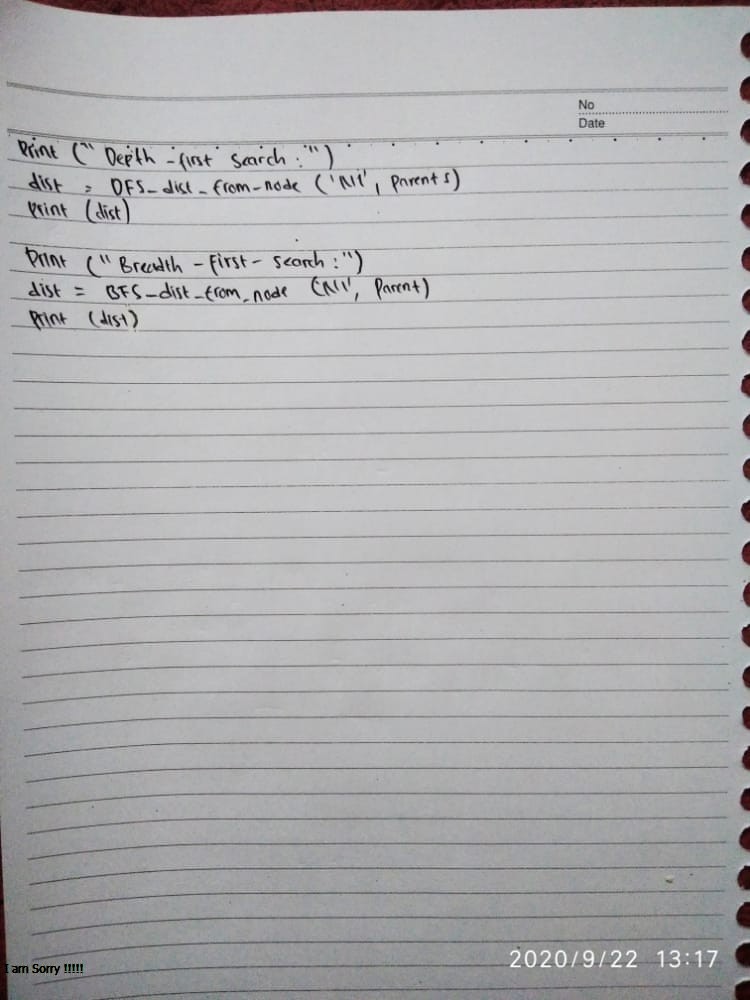 No
Date
Print (" Depth - first Search : ")
dist = DFS_dist_from_node ('N11', Parents)
Print (dist)
Print (" Breadth - First - Search : ")
dist = BFS_dist_from_node ('N11', Parent)
Print (dist)
I am Sorry !!!!!
2020/9/22 13:17